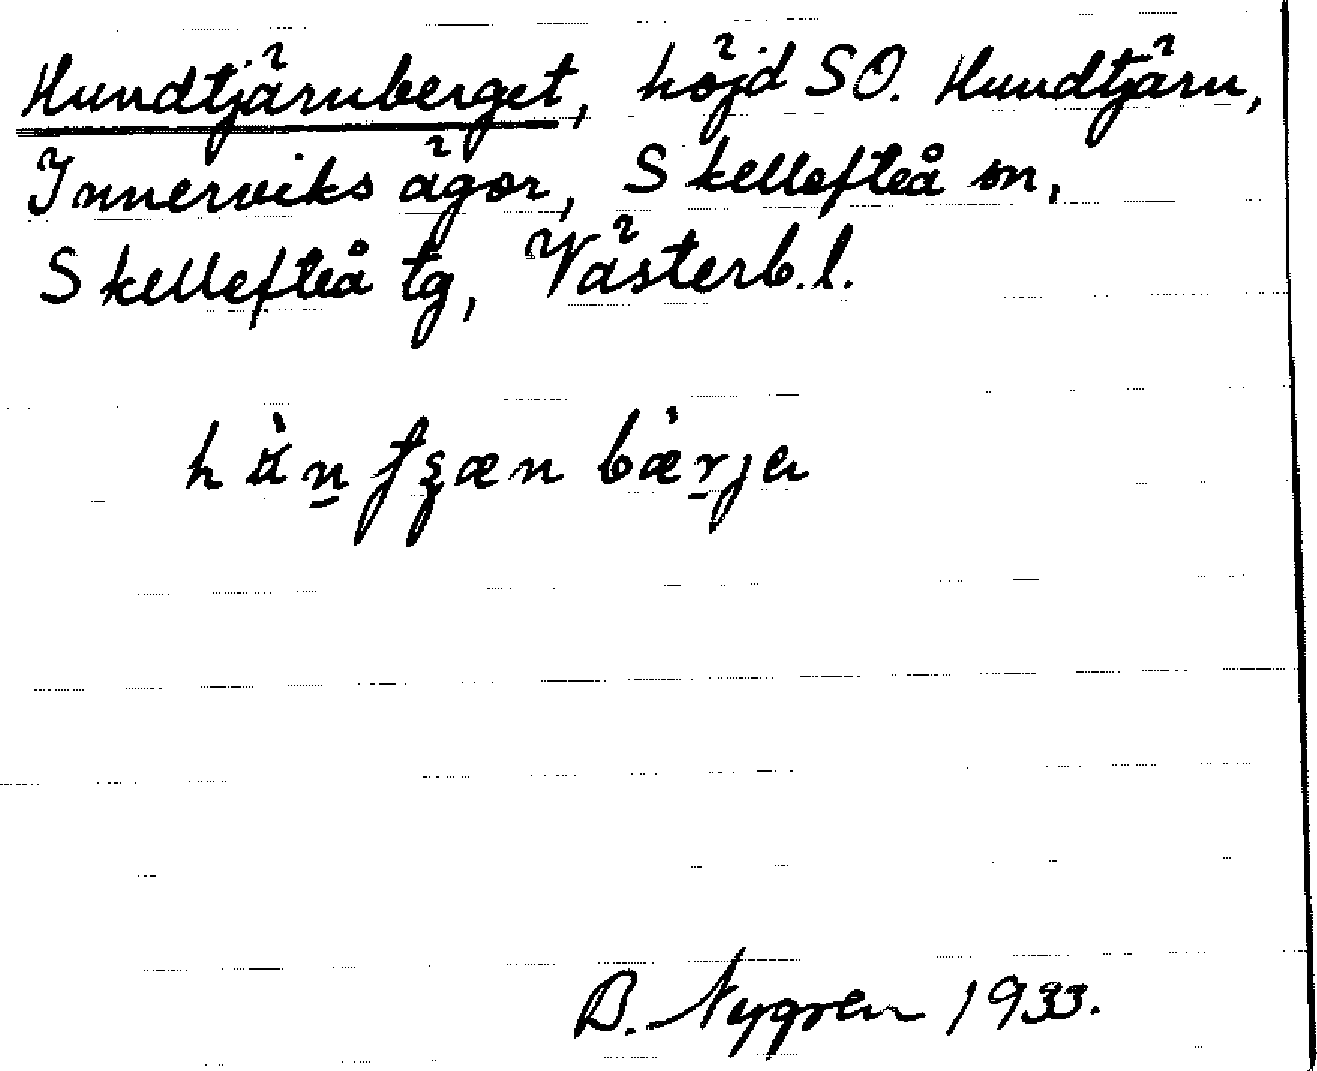 Hundtjärnberget, höjd SO. Hundtjärn,
Innerviks ägor, Skellefteå sn,
Skellefteå tg, Västerb.l.
B. Nygren 1933.